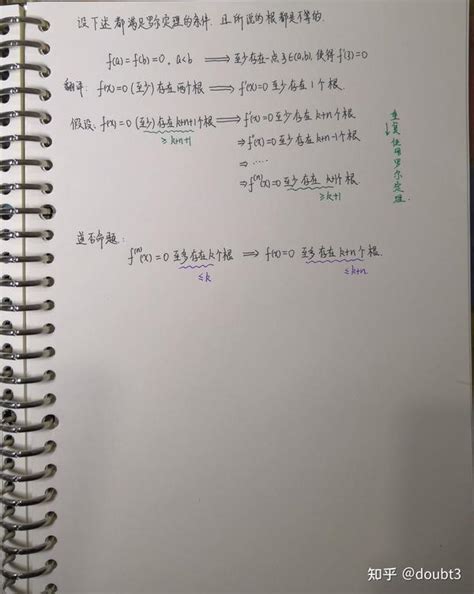 设下述都满足罗尔定理的条件. 且所说的根都是不等的.
f(a)=f(b)=0, a<b ⟹ 至少存在一点ξ∈(a,b), 使得f'(ξ)=0
翻译: f(x)=0 (至少)存在两个根 ⟹ f'(x)=0至少存在1个根.
假设: f(x)=0 (至少)存在k+n+1个根 ⟹ f'(x)=0至少存在k+n个根
≥k+n+1
⟹ f''(x)=0至少存在k+n-1个根
⟹ ……
⟹ f⁽ⁿ⁾(x)=0 至少存在 k+1个根
≥k+1
重复使用罗尔定理.
逆否命题:
f⁽ⁿ⁾(x)=0 至多存在k个根 ⟹ f(x)=0 至多存在k+n个根.
≤k ≤k+n
知乎 @doubt3